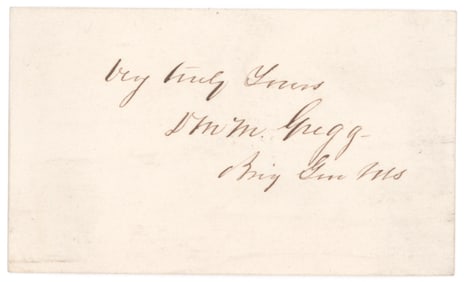 Very truly Yours
D McM. Gregg
Brig Gen Vols